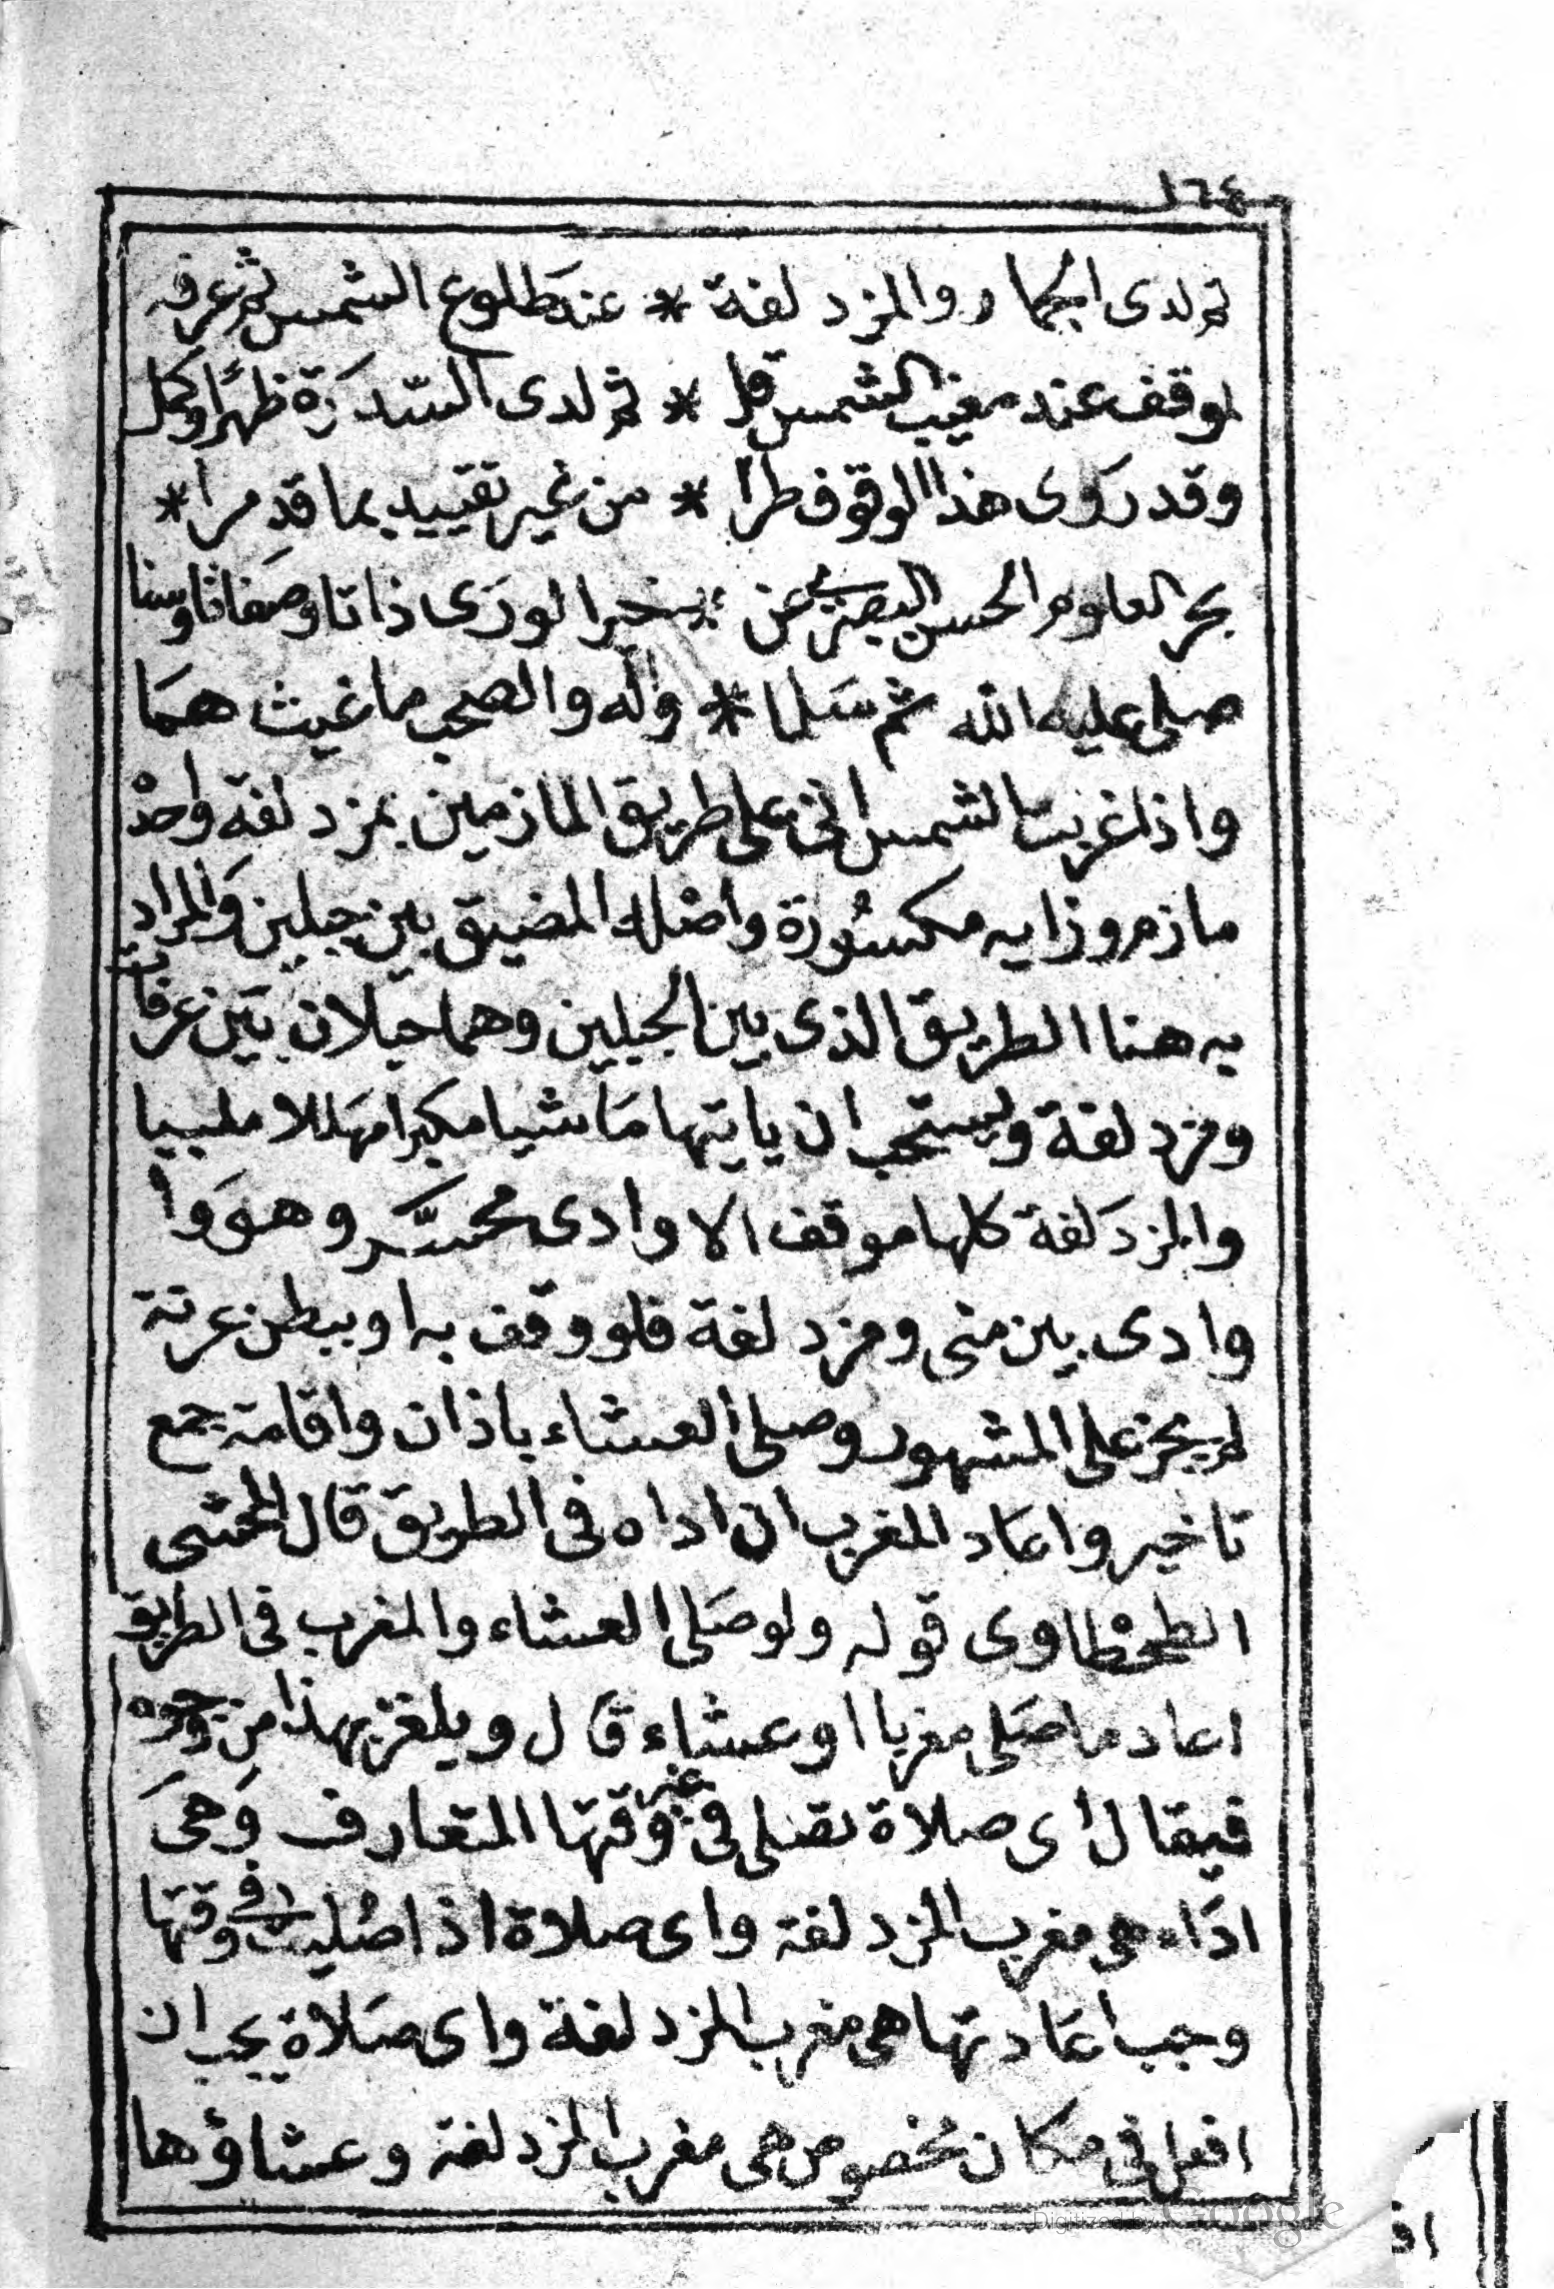 ١٦٤
ثم لدى الجمار والمزدلفة * عند طلوع الشمس ثم عرفه
لموقف عند مغيب الشمس قل * ثم لدى السدرة ظهرًا وكمل
وقد روى هذا الوقوف طرا * من غير تقييد بما قد مرا *
بحر العلوم الحسن البصري عن * خير الورى ذاتا وصفاتا وسنا
صلى عليه الله ثم سلما * وآله والصحب ما غيث همَا
واذا غربت الشمس اتى على طريق المازمين بمزدلفة واحدْ
مازم وزايه مكسُورة واصْله المضيق بين جبلين والمراد
به هنا الطريق الذى بين الجبلين وهما جبلان بَين عرفات
ومزدلفة ويستحب ان ياتيها مَاشيا مكبرا مهَللا ملبيا
والمزدَلفة كلها موقف الا وادى محسَّر وهوَ وا
وادى بين منى ومزدلفة فلو وقف به او ببطن عرنة
لم يجز على المشهور وصلى العشاء باذان واقامة جمع
تاخير واعَاد المغرب ان اداه فى الطريق قال المحشى
الطحْطاوى قوله ولو صَلى العشاء والمغرب فى الطريق
اعاد ما صَلى مغربا او عشاء قال ويلغز بهذا من وجوه
فيقال أى صلاة تصَلى فى غير وقتهَا المتعارف وَهىَ
ادَاء هى مغرب المزدلفة واى صلاة اذا صُليت فى وقتهَا
وجب اعَادتها هى مغرب المزدلفة واى صَلاة يجب ان
افعل فى مكان مخصوص هى مغرب المزدلفة وعشاؤها
Digitized by Google